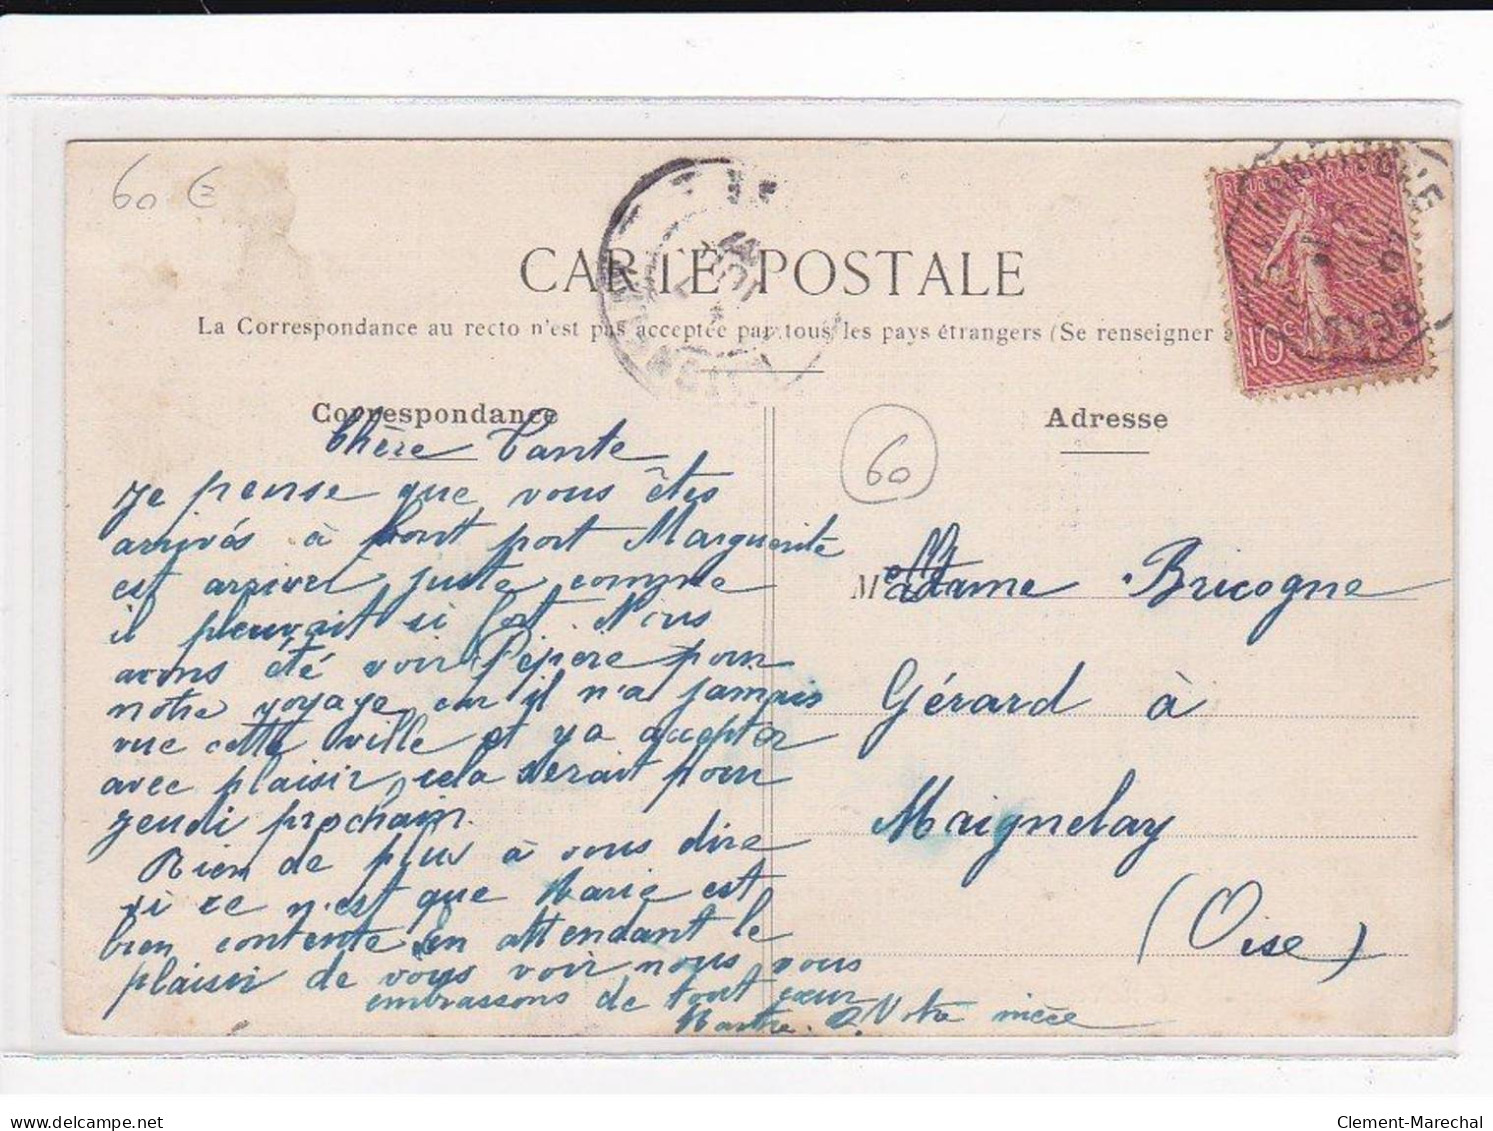 60 €
CARTE POSTALE
La Correspondance au recto n'est pas acceptée par tous les pays étrangers (Se renseigner à
REPUBLIQUE FRANCAISE
10c
Correspondance
Adresse
60
Chère Tante
Je pense que vous êtes
arrivés à bont port Marguerite
est arriver juste comme
il pleuvait si fort. Nous
avons été voir Pépère pour
notre voyage car il n'a jamais
vue cette ville et y a accepter
avec plaisir, cela serait pour
jeudi prochain.
Rien de plus à vous dire
si ce n'est que Marie est
bien contente en attendant le
plaisir de vous voir nous vous
embrassons de tout cœur
Marthe. Votre nièce
Madame Bricogne
Gérard à
Maignelay
(Oise)
delcampe.net
Clement-Marechal